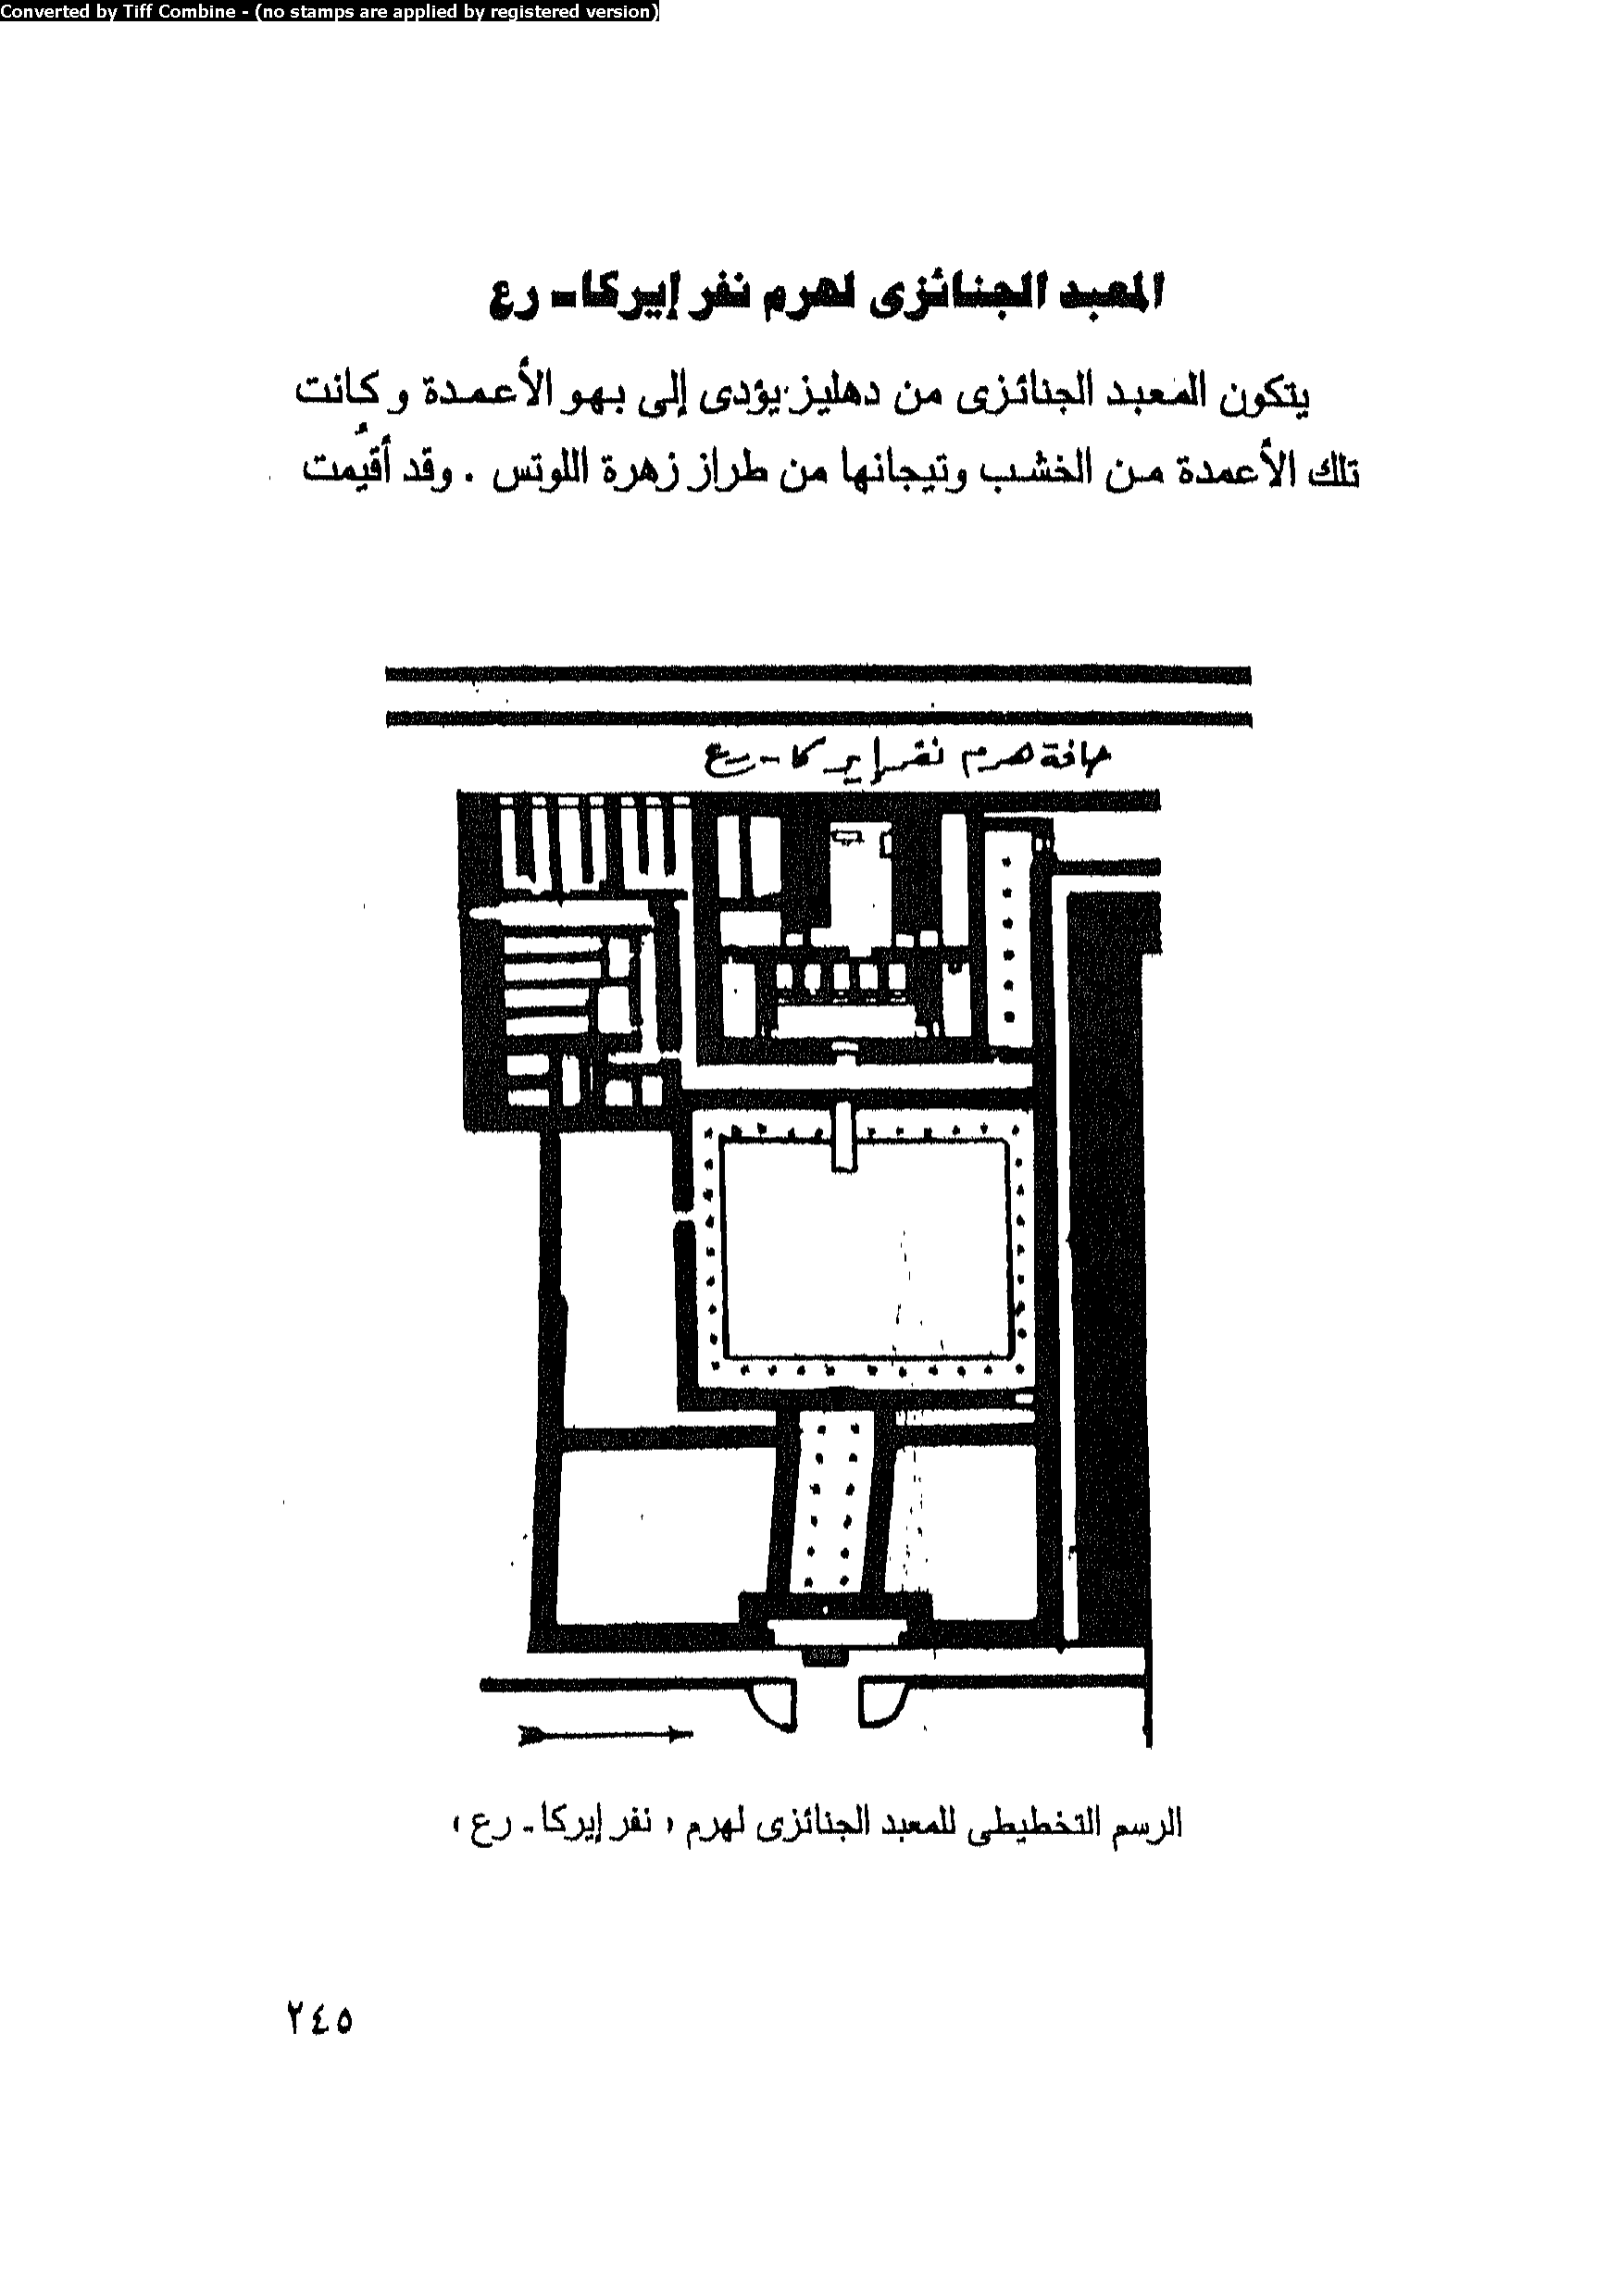 Converted by Tiff Combine - (no stamps are applied by registered version)
المعبد الجنائزى لهرم نفر إيركا - رع
يتكون المعبد الجنائزى من دهليز يؤدى إلى بهو الأعمدة وكانت
تلك الأعمدة من الخشب وتيجانها من طراز زهرة اللوتس . وقد أقيمت
حافة هرم نفر إير كا - رع
الرسم التخطيطى للمعبد الجنائزى لهرم « نفر إيركا - رع »
٢٤٥